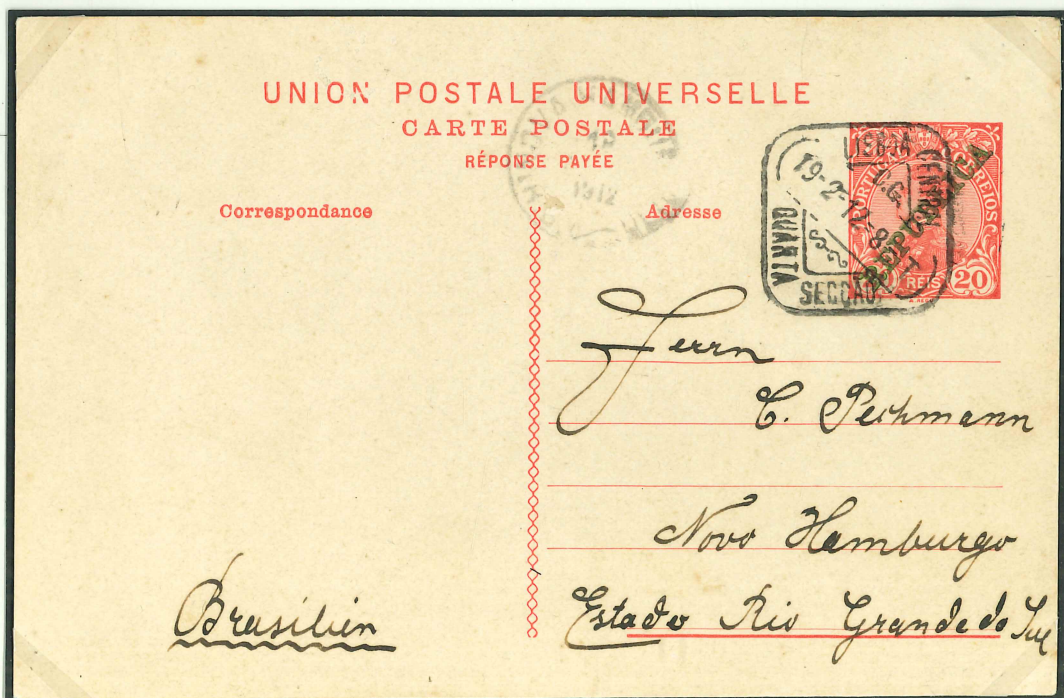 UNION POSTALE UNIVERSELLE
CARTE POSTALE
RÉPONSE PAYÉE
Correspondance
Adresse
1912
LISBOA CENTRAL
19-2-12
QUARTA
SECÇÃO
PORTUGAL CORREIOS
REPUBLICA
RÉIS 20
Herrn
C. Pechmann
Novo Hamburgo
Estado Rio Grande do Sul
Brasilien